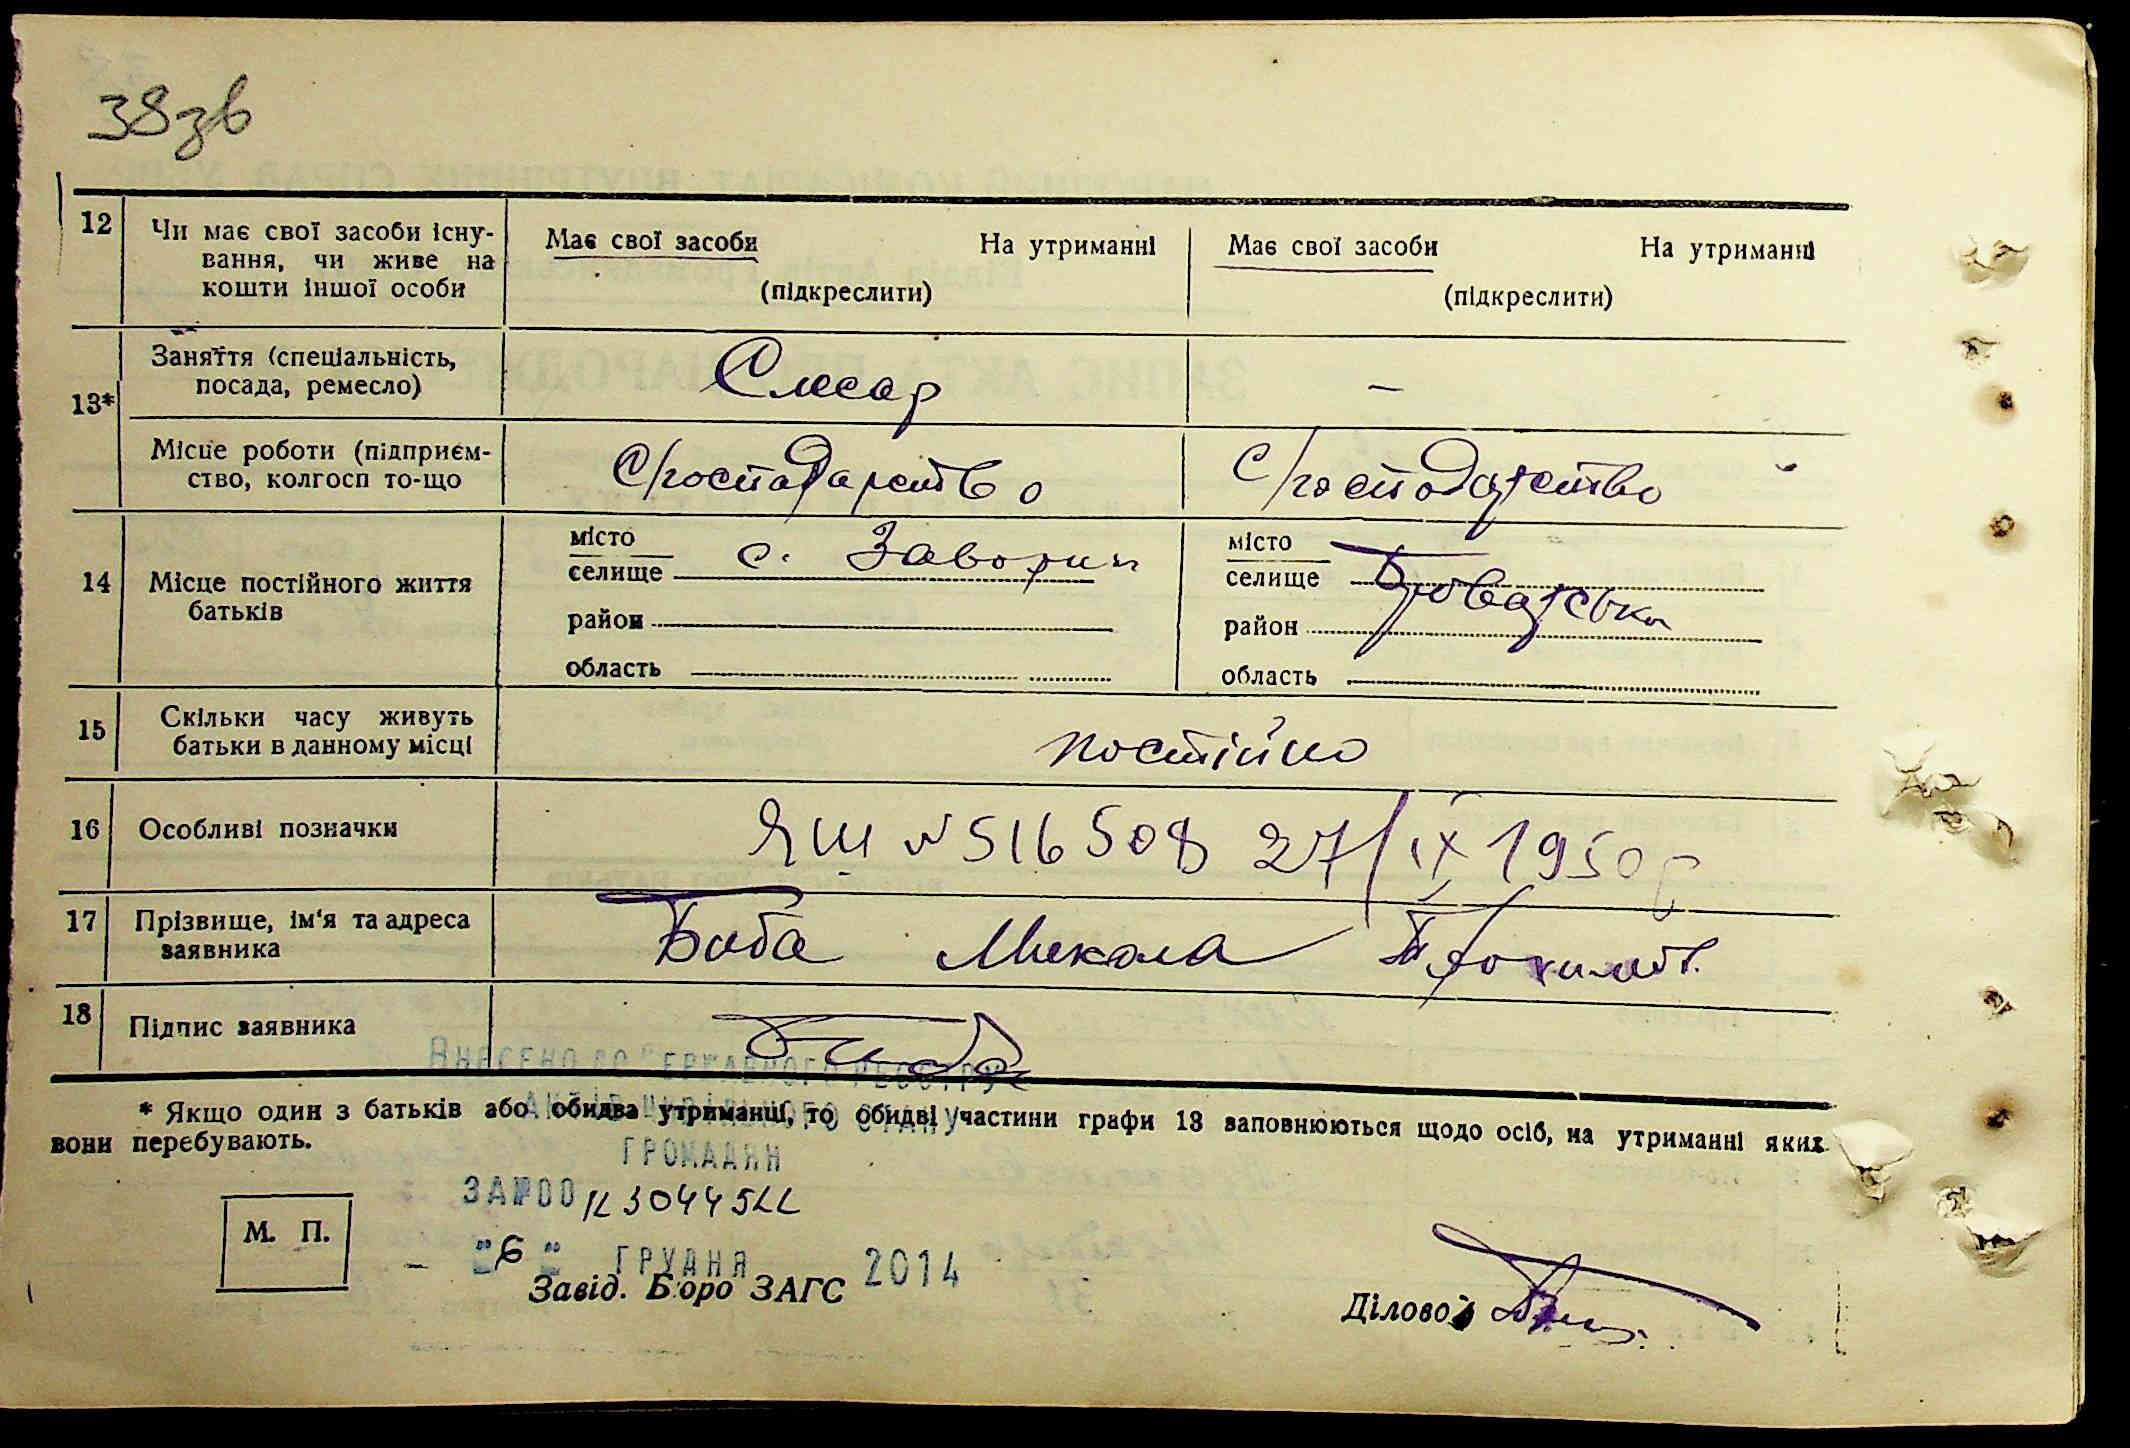 38зв
12 Чи має свої засоби існу-
вання, чи живе на
кошти іншої особи
Має свої засоби На утриманні
(підкреслити)
Має свої засоби На утриманні
(підкреслити)
13*
Заняття (спеціальність,
посада, ремесло)
Слесар
–
Місце роботи (підприєм-
ство, колгосп то-що
С/господарство
С/господарство
14 Місце постійного життя
батьків
місто
селище с. Заворичі
район
область
місто
селище Броварська
район
область
15 Скільки часу живуть
батьки в данному місці
постійно
16 Особливі позначки
ЯШ №516508 27/IX 1950р
17 Прізвище, ім'я та адреса
заявника
Биба Микола
18 Підпис заявника
* Якщо один з батьків або обидва утриманці, то обидві частини графи 13 заповнюються щодо осіб, на утриманні яких
вони перебувають.
Внесено до Державного реєстру
актів цивільного стану
громадян
за №00
М. П.
"6" грудня 2014
Завід. Бюро ЗАГС
Діловод